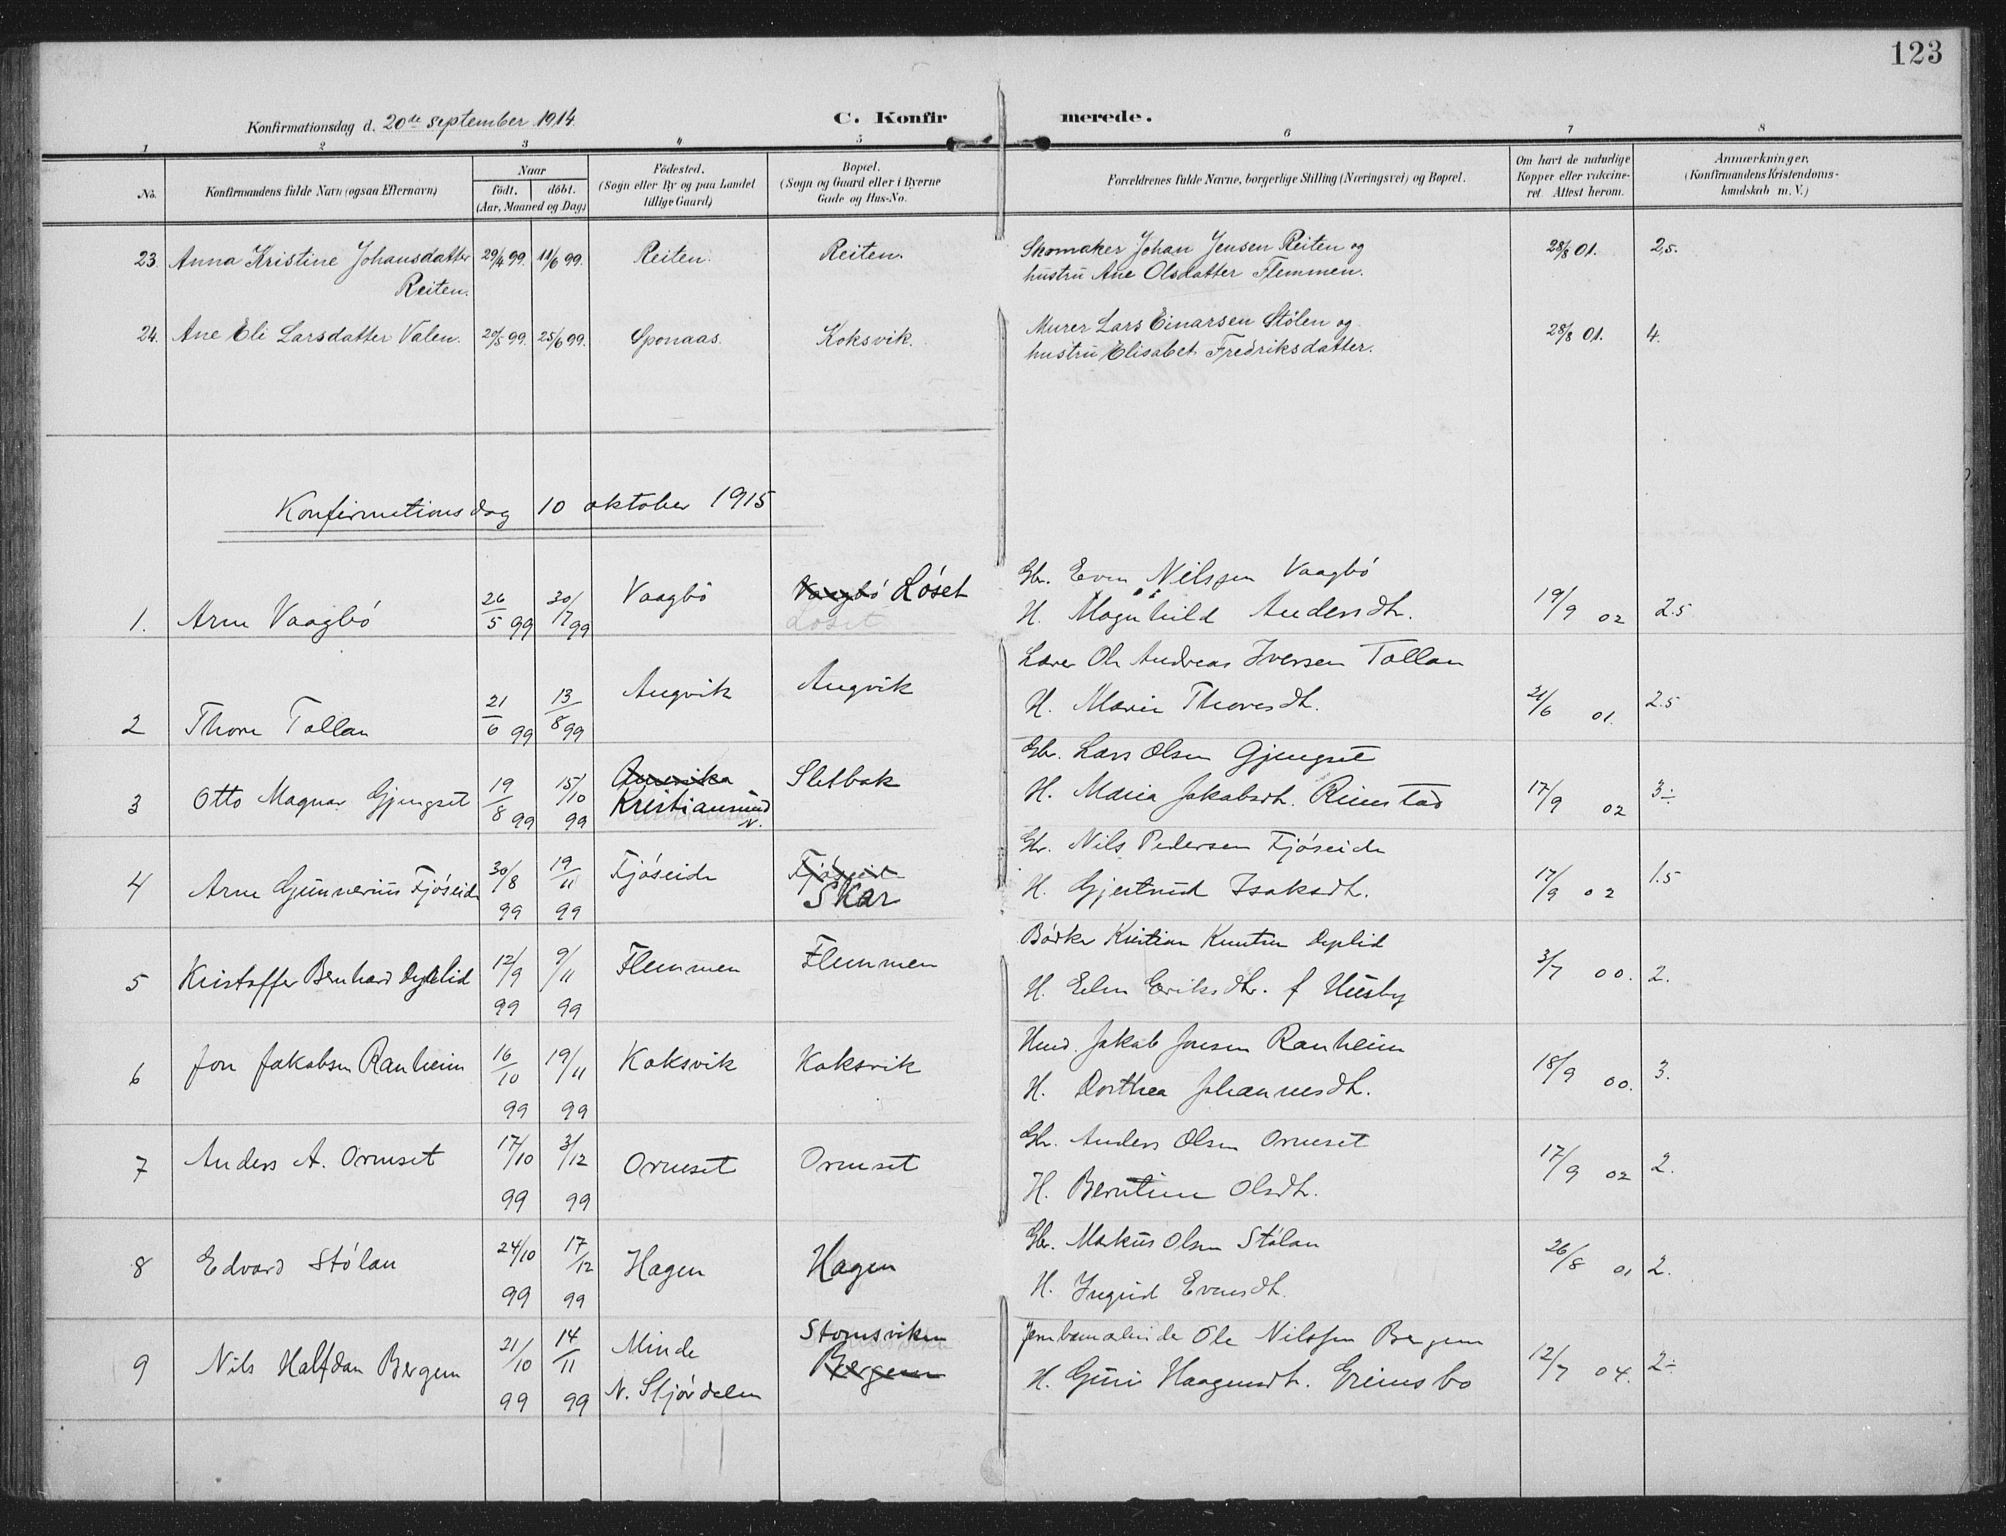 123
Konfirmationsdag d. 20de september 1914.
C. Konfirmerede.
1 2 3 4 5 6 7 8
No. Konfirmandens fulde Navn (ogsaa Efternavn)
Naar födt. döbt. (Aar, Maaned og Dag)
Födested. (Sogn eller By og paa Landet tillige Gaard)
Bopæl. (Sogn og Gaard eller i Byerne Gade og Hus-No.
Forældrenes fulde Navne, borgerlige Stilling (Næringsvei) og Bopæl.
Om havt de naturlige Kopper eller vakcineret. Attest herom.
Anmærkninger. (Konfirmandens Kristendomskundskab m. V.)
23. Anna Kristine Johansdatter Reiten. 29/4 99. 11/6 99. Reiten. Reiten. Skomaker Johan Jensen Reiten og 28/8 01. 2,5.
hustru Ane Olsdatter Flemmen.
24. Ane Eli Larsdatter Valen. 20/5 99. 25/6 99. Sponaas. Koksvik. Murer Lars Einarsen Stölen og 28/8 01. 4.
hustru Elisabet Fredriksdatter.
Konfirmationsdag 10 oktober 1915
1. Arne Vaagbó 26/5 99 30/7 99 Vaagbó Vaagbó Lóset Gbr. Even Nilssen Vaagbó 19/9 02 2.5
Lóset H. Magnhild Andersdtr.
2 Thore Tallan 21/6 99 13/8 99 Angvik Angvik Lærer Ole Andreas Iversen Tallan 21/6 01. 2.5
H. Marie Thoresdtr.
3 Otto Magnar Gjengset 19/8 99 15/10 99 Amerika Kristiansund N. Sletbak Gbr. Lars Olsen Gjengset 17/9 02 3÷
H. Maria Jakobsdtr. Rimstad
4 Arne Gunnerius Fjóseide 30/8 99 19/11 99 Fjóseide Fjóseide Skar Gbr. Nils Pedersen Fjóseide 17/9 02 1.5
H. Gjertrud Isaksdtr.
5 Kristoffer Bernhard Dyplid 12/9 99 9/11 99 Flemmen Flemmen Bódker Kristian Knutsen Dyplid 3/7 00. 2.
H. Elen Eriksdtr. f Husby
6 Jon Jakobsen Ranheim 16/10 99 19/11 99 Koksvik Koksvik Husd. Jakob Jonsen Ranheim 18/9 00. 3.
H. Dorthea Johannesdtr.
7 Anders A. Ormset 17/10 99 3/12 99 Ormset Ormset Gbr. Anders Olsen Ormset 17/9 02 2.
H. Berntine Olsdtr.
8 Edvard Stólan 24/10 99 17/12 99 Hagen Hagen Gbr. Markus Olsen Stólan 26/8 01 2.
H. Ingrid Evensdtr.
9 Nils Halfdan Bergem 21/10 99 14/11 99 Minde N. Stjórdalen Stomsviken Bergem Jernbanearbeider Ole Nilssen Bergem 12/7 04. 2÷
H. Guri Haagensdtr. Grimsbo